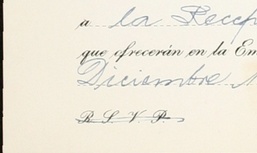 a la Recep
que ofrecerán en la Em
Diciembre
R S V P.